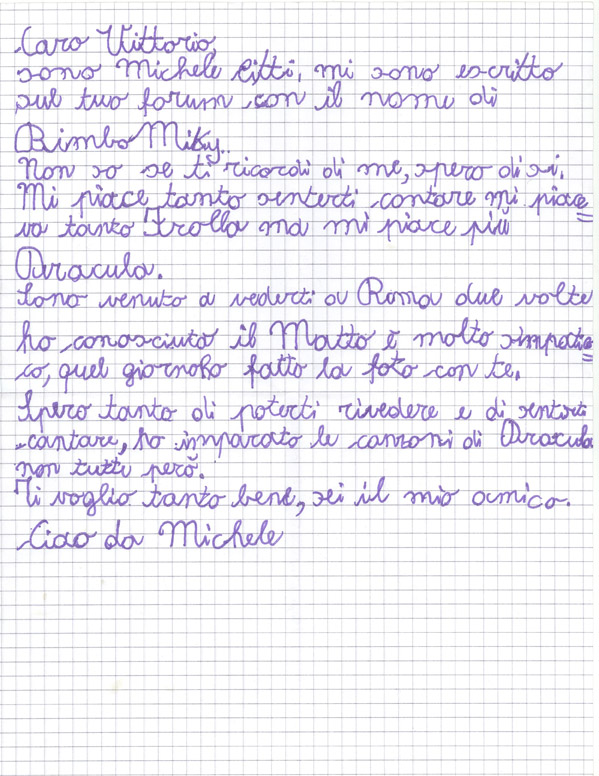 Caro Vittorio,
sono Michele Citti, mi sono escritto
sul tuo forum con il nome di
Bimbo Miky..
Non so se ti ricordi di me, spero di si.
Mi piace tanto senterti cantare mi piace
va tanto Frollo ma mi piace più
Dracula.
Sono venuto a vederti a Roma due volte
ho conosciuto il Matto è molto simpati=
co, quel giorno ho fatto la foto con te.
Spero tanto di poterti rivedere e di sentirti
cantare, ho imparato le canzoni di Dracula
non tutte però.
Ti voglio tanto bene, sei il mio amico.
Ciao da Michele